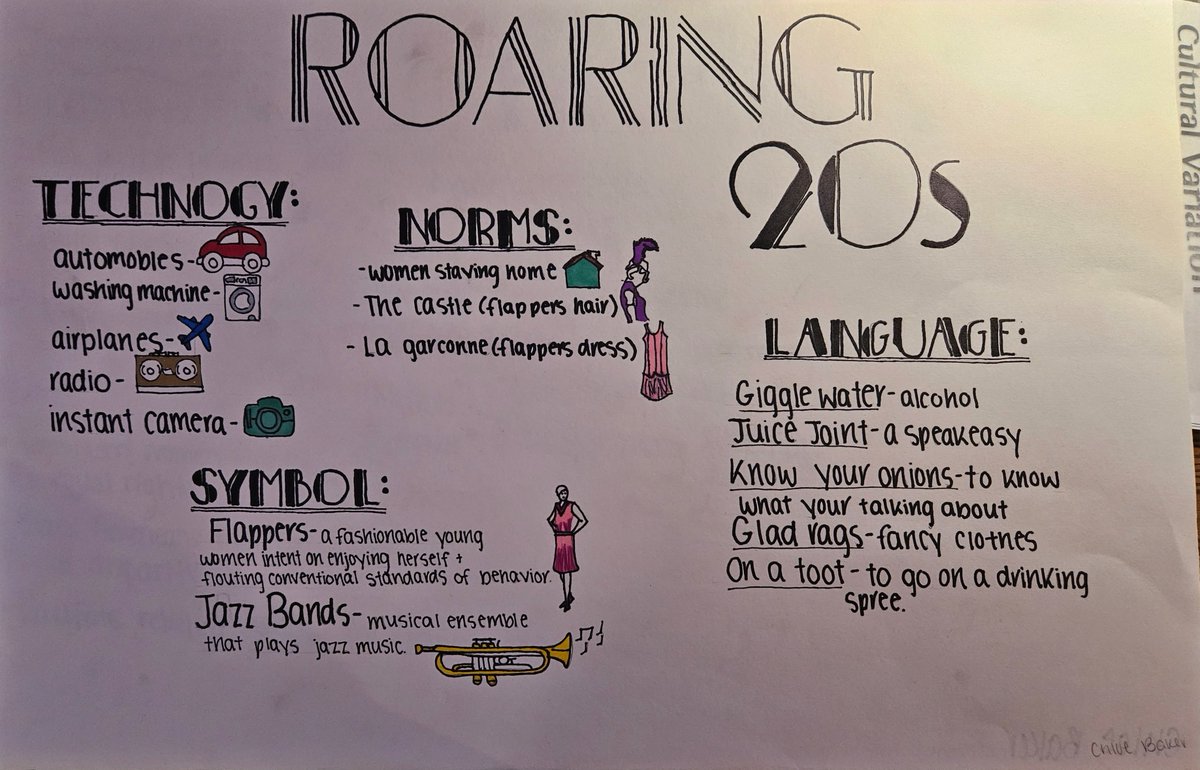 ROARING
20s
TECHNOGY:
automobles-
washing machine-
airplanes-
radio-
instant camera-
NORMS:
-women staying home
-The castle (flappers hair)
- La garconne (flappers dress)
LANGUAGE:
Giggle water-alcohol
Juice Joint-a speakeasy
Know your onions-to know
what your talking about
Glad rags-fancy clothes
On a toot- to go on a drinking
spree.
SYMBOL:
Flappers- a fashionable young
women intent on enjoying herself +
flouting conventional standards of behavior.
Jazz Bands- musical ensemble
that plays jazz music.
Cultural Variation
Chloe Baker